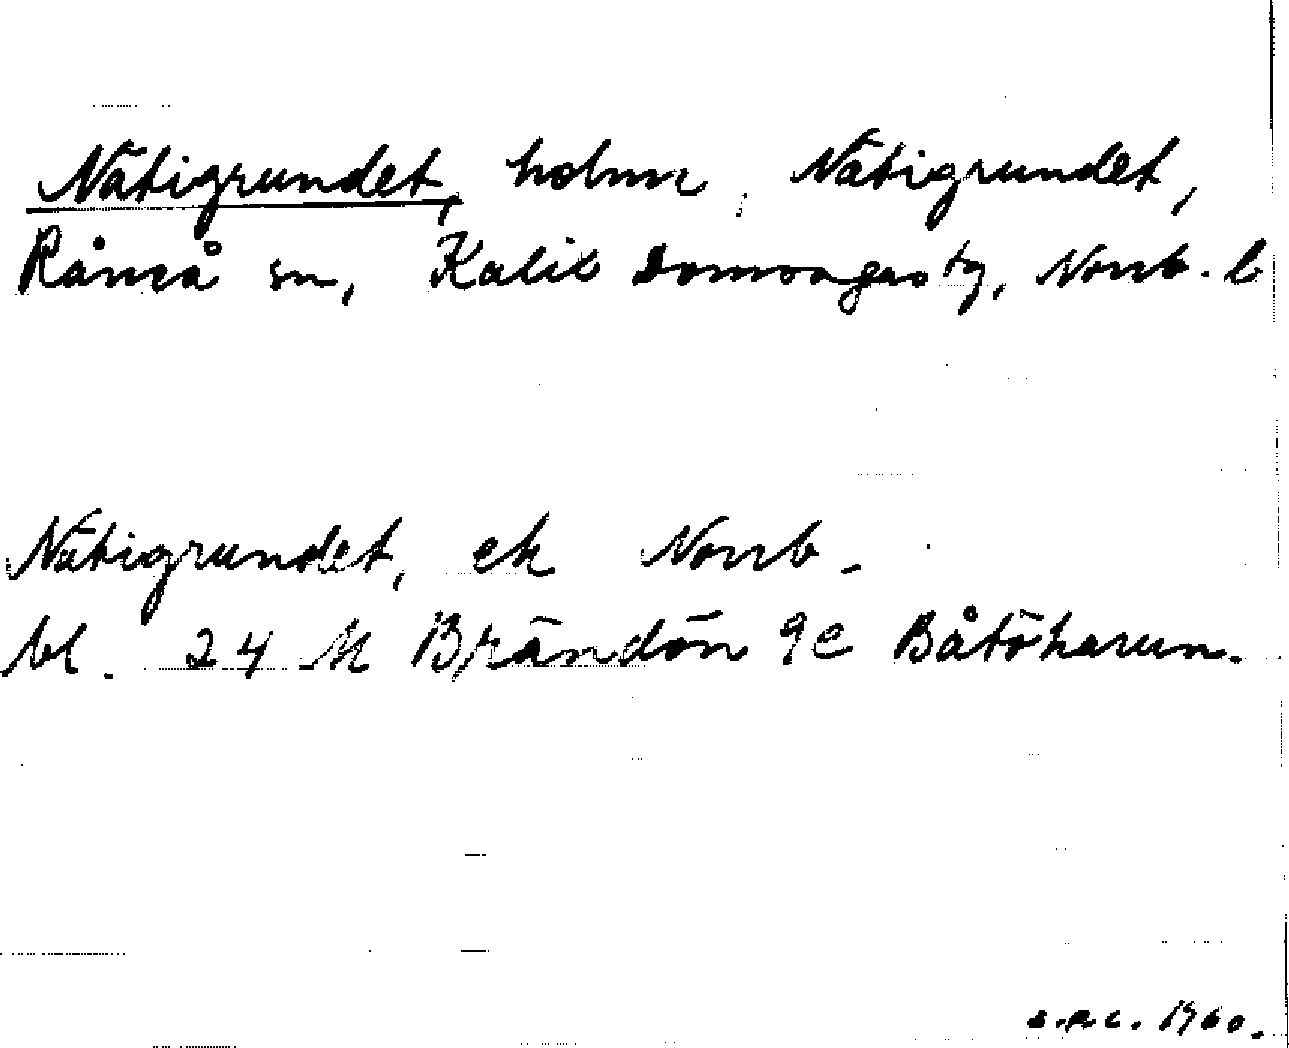 Nätigrundet, holme, Nätigrundet,
Råneå sn, Kalix Domsagas tg, Norrb. l
Nätigrundet, ek Norrb.
bl. 24 M Brändön 9e Båtöharun.
1960.